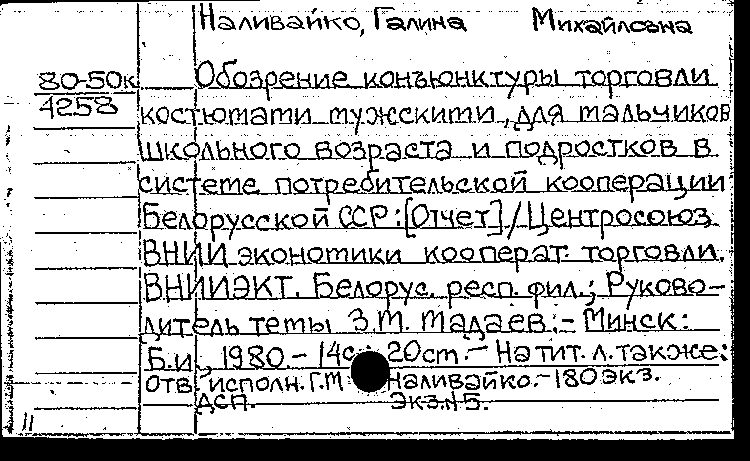 Наливайко, Галина Михайловна
80-50к Обозрение конъюнктуры торговли
4258 костюмами мужскими, для мальчиков
школьного возраста и подростков в
системе потребительской кооперации
Белорусской ССР: [Отчет] / Центросоюз.
ВНИИ экономики кооперат. торговли.
ВНИИЭКТ. Белорус. респ. фил.; Руково-
дитель темы З.М. Мадаев. - Минск:
Б.и., 1980. - 14с.; 20см. - На тит. л. также:
отв. исполн. Г.М. Наливайко. - 180 экз.
ДСП. Экз.№5.
11